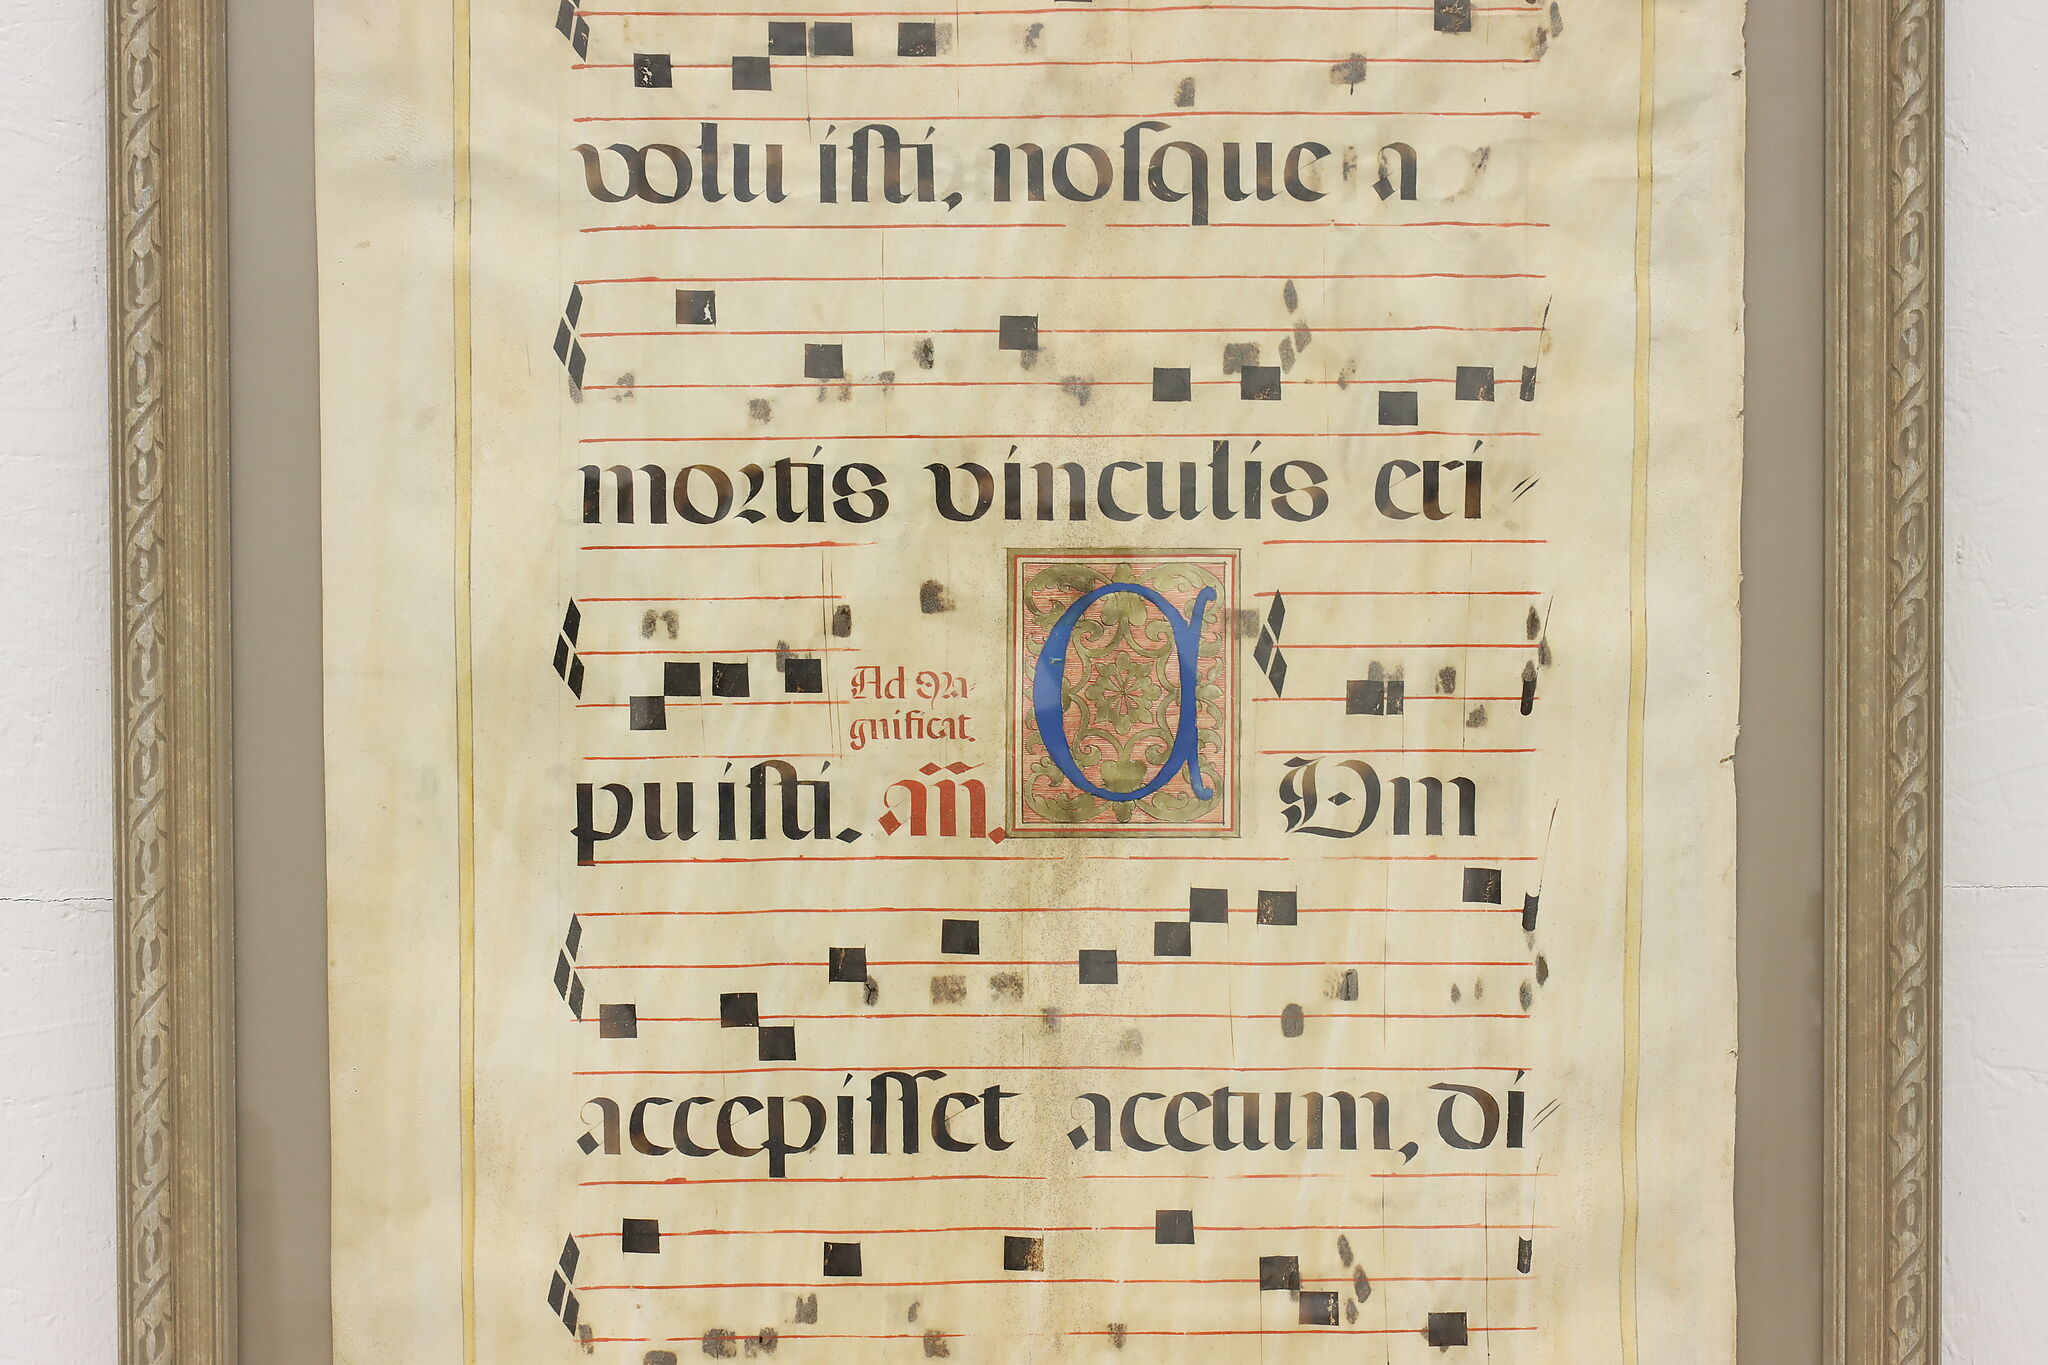 volu isti, nosque a
mortis vinculis eri
puisti. Ad Ma-
gnificat.
añ. C Vm
accepisset acetum, di